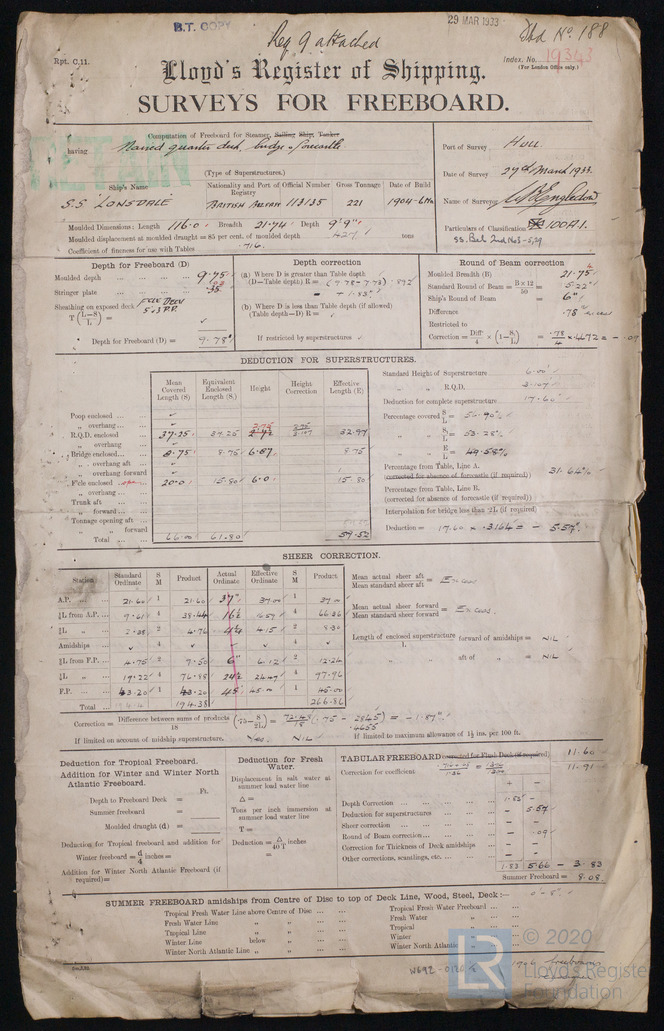 B.T. COPY
29 MAR 1933
Req 9 attached
Std No. 188
Rpt. C.11.
Index. No. 19343
(For London Office only.)
Lloyd's Register of Shipping.
SURVEYS FOR FREEBOARD.
Computation of Freeboard for Steamer, Sailing Ship, Tanker
having Raised quarter deck, bridge & forecastle
(Type of Superstructures.)
Port of Survey HULL
Date of Survey 27th March 1933.
Name of Surveyor
Particulars of Classification 100A1.
Ship's Name
Nationality and Port of Registry
Official Number
Gross Tonnage
Date of Build
S.S "LONSDALE"
BRITISH
113135
221
1904
Moulded Dimensions: Length 116.0 Breadth 21.74 Depth 9'9"
Moulded displacement at moulded draught = 85 per cent. of moulded depth 427 tons
Coefficient of fineness for use with Tables .716
Depth for Freeboard (D)
Moulded depth 9.75
Stringer plate
Sheathing on exposed deck
T (L-S/L) =
Depth for Freeboard (D) = 9.78
Depth correction
(a) Where D is greater than Table depth
(D—Table depth) R =
(b) Where D is less than Table depth (if allowed)
(Table depth—D) R =
If restricted by superstructures
Round of Beam correction
Moulded Breadth (B) 21.75
Standard Round of Beam = B×12/50 = 5.22"
Ship's Round of Beam = 6"
Difference .78"
Restricted to
Correction = Diff/4 × (1-S1/L) = .78/4 × .4672 = - .09
DEDUCTION FOR SUPERSTRUCTURES.
Mean Covered Length (S)
Equivalent Enclosed Length (S1)
Height
Height Correction
Effective Length (E)
Poop enclosed
„ overhang
R.Q.D. enclosed 37.25 37.25 32.97
„ overhang
Bridge enclosed 8.75 8.75 6.67 8.75
„ overhang aft
„ overhang forward
F'cle enclosed 20.0 15.80 6.0 15.80
„ overhang
Trunk aft
„ forward
Tonnage opening aft
„ „ forward
Total 66.00 61.80 57.52
Standard Height of Superstructure 6.00
„ „ R.Q.D. 3.107
Deduction for complete superstructure 17.60
Percentage covered S/L = 56.90%
„ „ S1/L = 53.28%
„ „ E/L = 49.58%
Percentage from Table, Line A.
(corrected for absence of forecastle (if required)) 31.64%
Percentage from Table, Line B.
(corrected for absence of forecastle (if required))
Interpolation for bridge less than .2L (if required)
Deduction = 17.60 × .3164 = - 5.57"
SHEER CORRECTION.
Station
Standard Ordinate
S M
Product
Actual Ordinate
Effective Ordinate
S M
Product
A.P. 21.60 1 21.60 37" 37.00 1 37.00
⅙L from A.P. 9.61 4 38.44 16½ 16.59 4 66.36
⅓L „ 2.38 2 4.76 4¼ 4.15 2 8.30
Amidships 4 4
⅓L from F.P. 4.75 2 9.50 6" 6.12 2 12.24
⅙L „ 19.22 4 76.88 24½ 24.49 4 97.96
F.P. 43.20 1 43.20 45" 45.00 1 45.00
Total 194.38 266.86
Mean actual sheer aft / Mean standard sheer aft = Excess
Mean actual sheer forward / Mean standard sheer forward = Excess
Length of enclosed superstructure / L forward of amidships = NIL
„ „ aft of „ = NIL
Correction = Difference between sums of products / 18 (.75 - S/2L) = 72.48/18 (.75 - .2845) = - 1.87"
.4655
If limited on account of midship superstructure. NIL
If limited to maximum allowance of 1½ ins. per 100 ft.
Deduction for Tropical Freeboard.
Addition for Winter and Winter North Atlantic Freeboard.
Ft.
Depth to Freeboard Deck =
Summer freeboard =
Moulded draught (d) =
Deduction for Tropical freeboard and addition for Winter freeboard = d/4 inches =
Addition for Winter North Atlantic Freeboard (if required) =
Deduction for Fresh Water.
Displacement in salt water at summer load water line
Δ =
Tons per inch immersion at summer load water line
T =
Deduction = Δ/40T inches
=
TABULAR FREEBOARD corrected for Flush Deck (if required) 11.60
Correction for coefficient 11.91
+ -
Depth Correction 1.83 -
Deduction for superstructures - 5.57
Sheer correction - -
Round of Beam correction - .09
Correction for Thickness of Deck amidships - -
Other corrections, scantlings, etc. - -
1.83 5.66 - 3.83
Summer Freeboard = 8.08
SUMMER FREEBOARD amidships from Centre of Disc to top of Deck Line, Wood, Steel, Deck:— 0'-8"
Tropical Fresh Water Line above Centre of Disc
Fresh Water Line „ „
Tropical Line „ „
Winter Line below „
Winter North Atlantic Line „ „
Tropical Fresh Water Freeboard
Fresh Water „
Tropical „
Winter „
Winter North Atlantic „
1906 freeboards
W692-0120
LR
© 2020
Lloyd's Register
Foundation